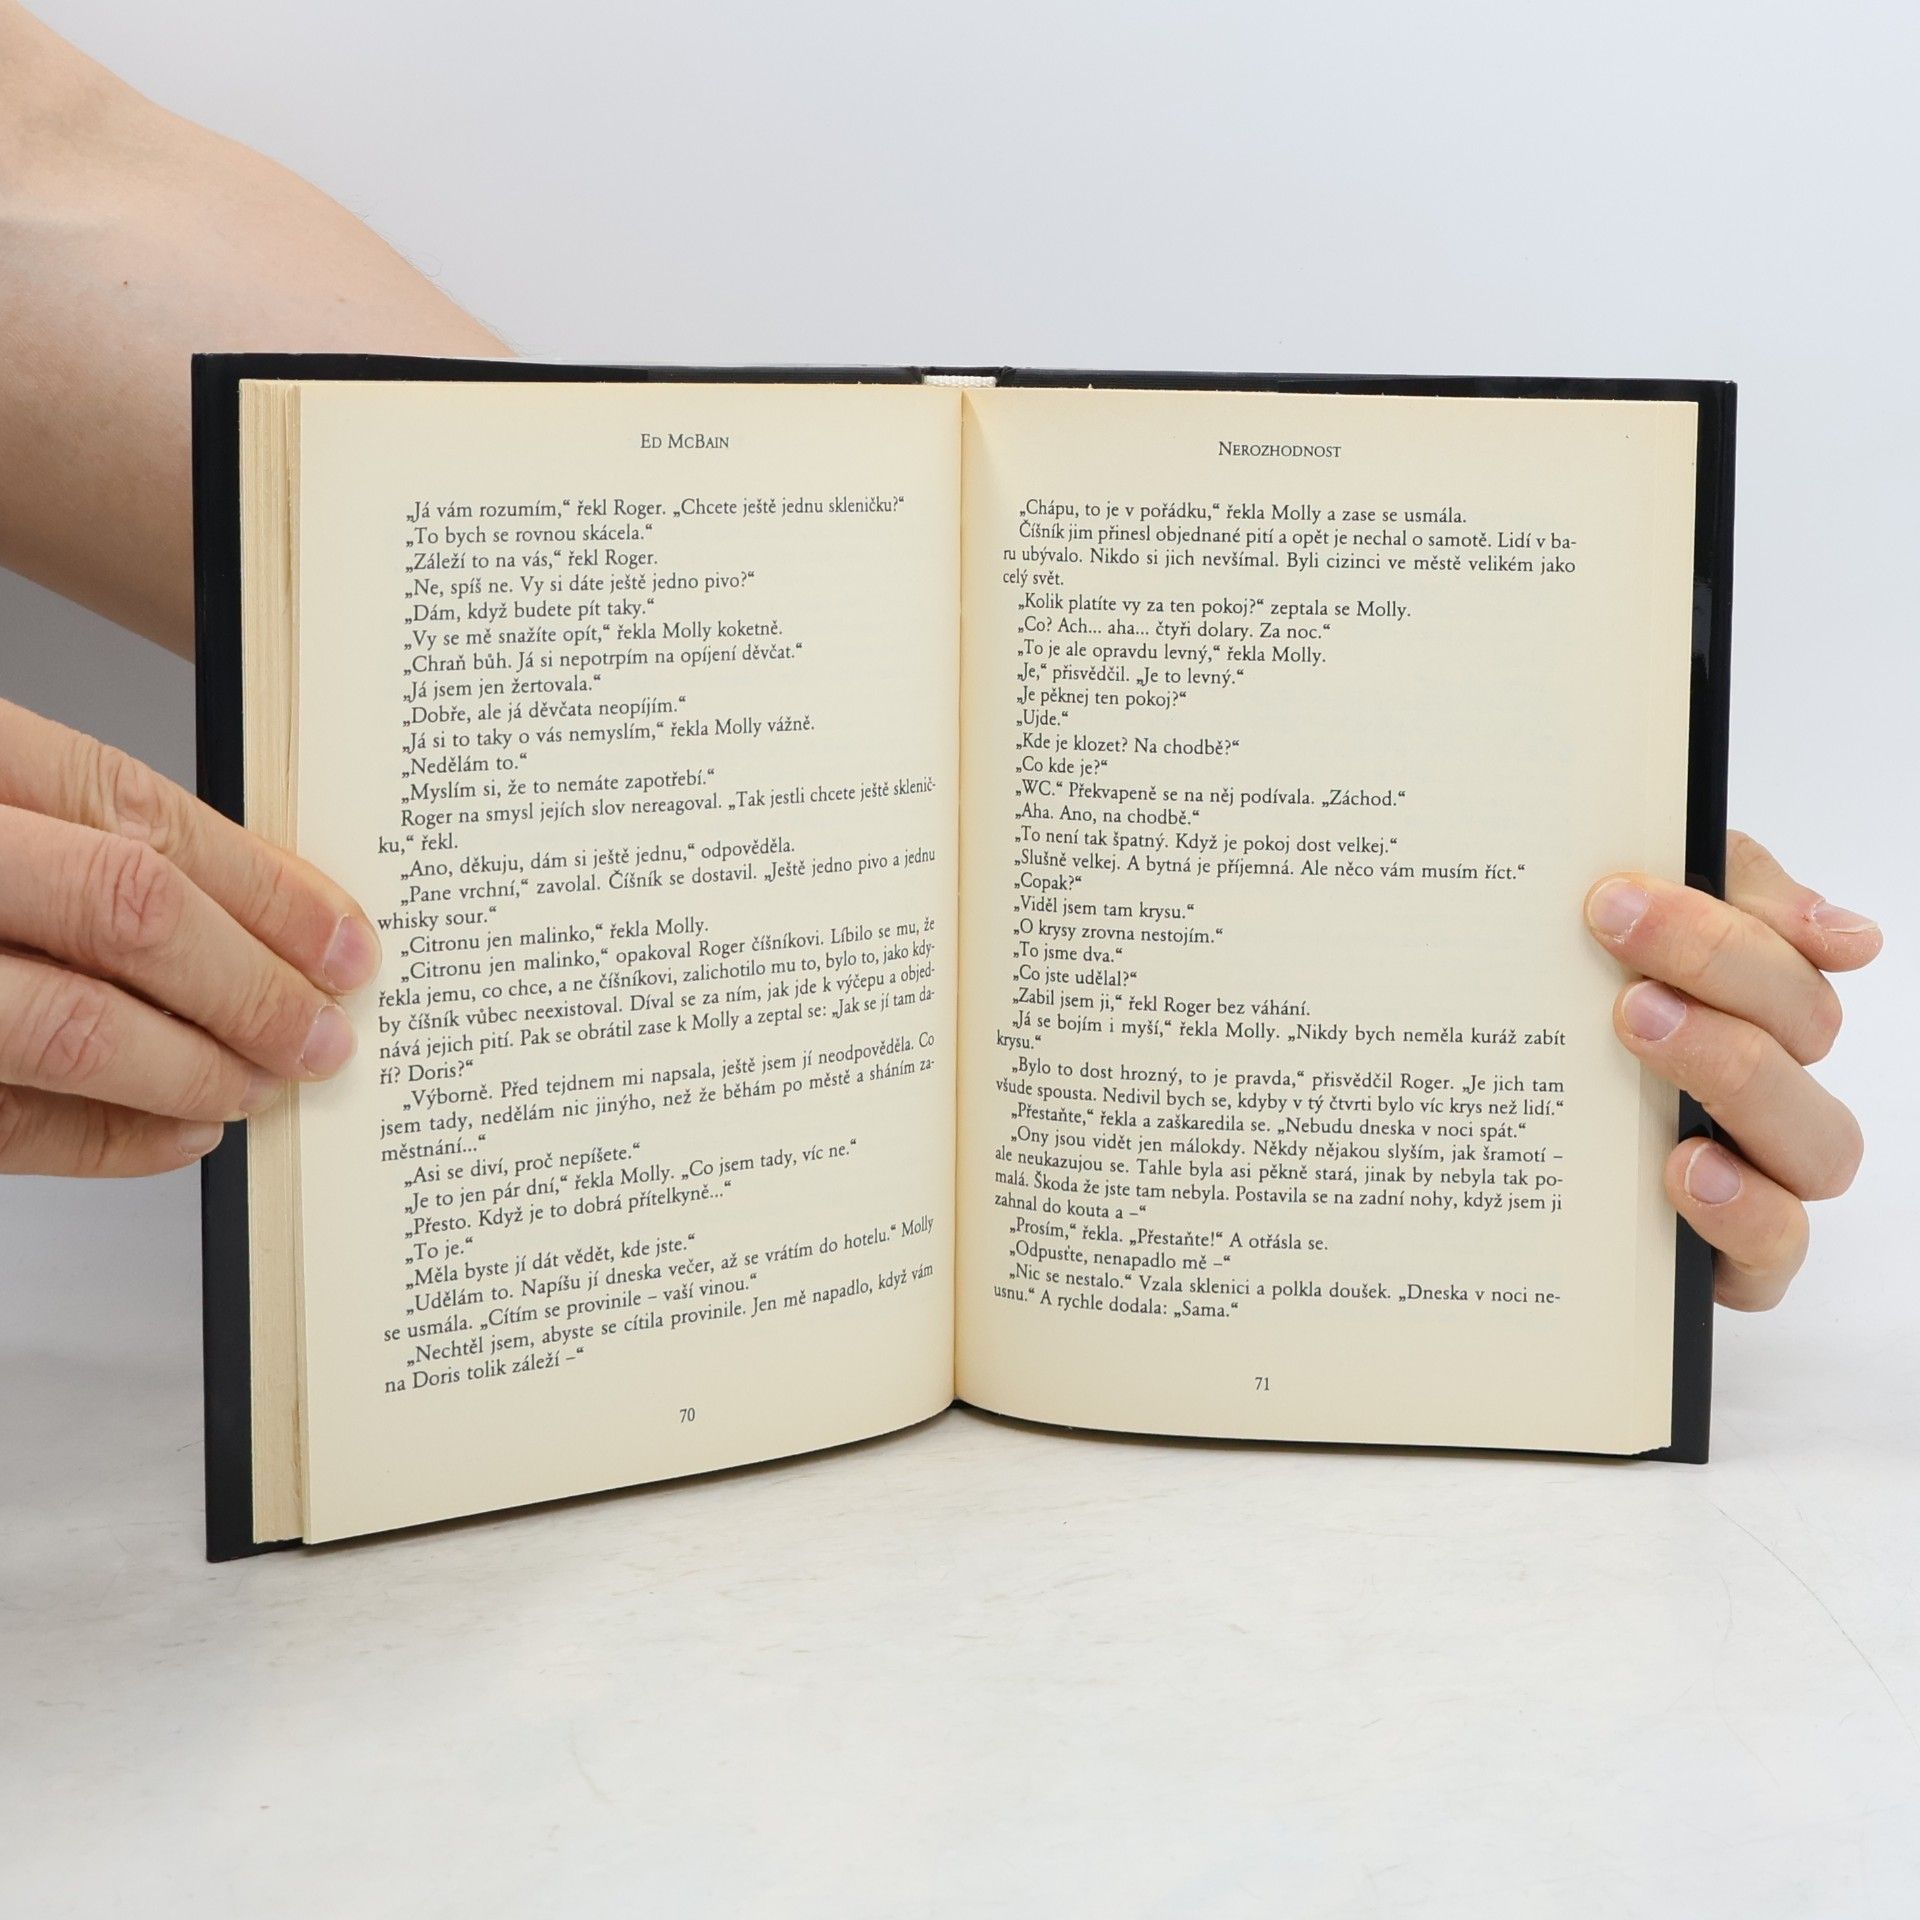 ED MCBAIN
„Já vám rozumím,“ řekl Roger. „Chcete ještě jednu skleničku?“
„To bych se rovnou skácela.“
„Záleží to na vás,“ řekl Roger.
„Ne, spíš ne. Vy si dáte ještě jedno pivo?“
„Dám, když budete pít taky.“
„Vy se mě snažíte opít,“ řekla Molly koketně.
„Chraň bůh. Já si nepotrpím na opíjení děvčat.“
„Já jsem jen žertovala.“
„Dobře, ale já děvčata neopíjím.“
„Já si to taky o vás nemyslím,“ řekla Molly vážně.
„Nedělám to.“
„Myslím si, že to nemáte zapotřebí.“
Roger na smysl jejích slov nereagoval. „Tak jestli chcete ještě sklenič-
ku,“ řekl.
„Ano, děkuju, dám si ještě jednu,“ odpověděla.
„Pane vrchní,“ zavolal. Číšník se dostavil. „Ještě jedno pivo a jednu
whisky sour.“
„Citronu jen malinko,“ řekla Molly.
„Citronu jen malinko,“ opakoval Roger číšníkovi. Líbilo se mu, že
řekla jemu, co chce, a ne číšníkovi, zalichotilo mu to, bylo to, jako kdy-
by číšník vůbec neexistoval. Díval se za ním, jak jde k výčepu a objed-
nává jejich pití. Pak se obrátil zase k Molly a zeptal se: „Jak se jí tam da-
ří? Doris?“
„Výborně. Před tejdnem mi napsala, ještě jsem jí neodpověděla. Co
jsem tady, nedělám nic jinýho, než že běhám po městě a sháním za-
městnání...“
„Asi se diví, proč nepíšete.“
„Je to jen pár dní,“ řekla Molly. „Co jsem tady, víc ne.“
„Přesto. Když je to dobrá přítelkyně...“
„To je.“
„Měla byste jí dát vědět, kde jste.“
„Udělám to. Napíšu jí dneska večer, až se vrátím do hotelu.“ Molly
se usmála. „Cítím se provinile – vaší vinou.“
„Nechtěl jsem, abyste se cítila provinile. Jen mě napadlo, když vám
na Doris tolik záleží –“
70
NEROZHODNOST
„Chápu, to je v pořádku,“ řekla Molly a zase se usmála.
Číšník jim přinesl objednané pití a opět je nechal o samotě. Lidí v ba-
ru ubývalo. Nikdo si jich nevšímal. Byli cizinci ve městě velikém jako
celý svět.
„Kolik platíte vy za ten pokoj?“ zeptala se Molly.
„Co? Ach... aha... čtyři dolary. Za noc.“
„To je ale opravdu levný,“ řekla Molly.
„Je,“ přisvědčil. „Je to levný.“
„Je pěknej ten pokoj?“
„Ujde.“
„Kde je klozet? Na chodbě?“
„Co kde je?“
„WC.“ Překvapeně se na něj podívala. „Záchod.“
„Aha. Ano, na chodbě.“
„To není tak špatný. Když je pokoj dost velkej.“
„Slušně velkej. A bytná je příjemná. Ale něco vám musím říct.“
„Copak?“
„Viděl jsem tam krysu.“
„O krysy zrovna nestojím.“
„To jsme dva.“
„Co jste udělal?“
„Zabil jsem ji,“ řekl Roger bez váhání.
„Já se bojím i myší,“ řekla Molly. „Nikdy bych neměla kuráž zabít
krysu.“
„Bylo to dost hrozný, to je pravda,“ přisvědčil Roger. „Je jich tam
všude spousta. Nedivil bych se, kdyby v tý čtvrti bylo víc krys než lidí.“
„Přestaňte,“ řekla a zaškaredila se. „Nebudu dneska v noci spát.“
„Ony jsou vidět jen málokdy. Někdy nějakou slyším, jak šramotí –
ale neukazujou se. Tahle byla asi pěkně stará, jinak by nebyla tak po-
malá. Škoda že jste tam nebyla. Postavila se na zadní nohy, když jsem ji
zahnal do kouta a –“
„Prosím,“ řekla. „Přestaňte!“ A otřásla se.
„Odpusťte, nenapadlo mě –“
„Nic se nestalo.“ Vzala sklenici a polkla doušek. „Dneska v noci ne-
usnu.“ A rychle dodala: „Sama.“
71